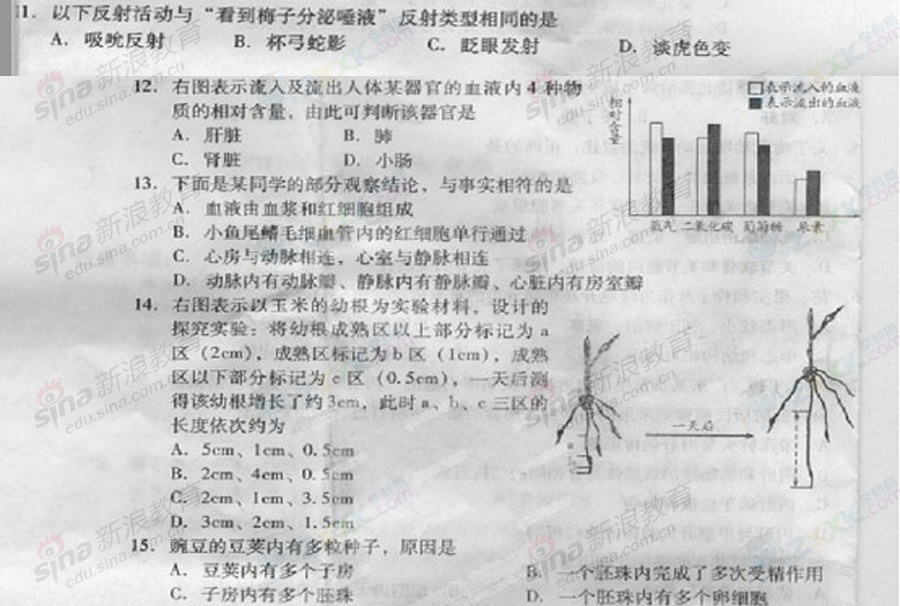 11. 以下反射活动与“看到梅子分泌唾液”反射类型相同的是
A. 吸吮反射 B. 杯弓蛇影 C. 眨眼发射 D. 谈虎色变
12. 右图表示流入及流出人体某器官的血液内4种物
质的相对含量，由此可判断该器官是
A. 肝脏 B. 肺
C. 肾脏 D. 小肠
相对含量
表示流入的血液
表示流出的血液
氧气 二氧化碳 葡萄糖 尿素
13. 下面是某同学的部分观察结论，与事实相符的是
A. 血液由血浆和红细胞组成
B. 小鱼尾鳍毛细血管内的红细胞单行通过
C. 心房与动脉相连，心室与静脉相连
D. 动脉内有动脉瓣、静脉内有静脉瓣、心脏内有房室瓣
14. 右图表示以玉米的幼根为实验材料，设计的
探究实验：将幼根成熟区以上部分标记为a
区（2cm），成熟区标记为b区（1cm），成熟
区以下部分标记为c区（0.5cm），一天后测
得该幼根增长了约3cm，此时a、b、c三区的
长度依次约为
A. 5cm、1cm、0.5cm
B. 2cm、4cm、0.5cm
C. 2cm、1cm、3.5cm
D. 3cm、2cm、1.5cm
a
一天后
15. 豌豆的豆荚内有多粒种子，原因是
A. 豆荚内有多个子房 B. 一个胚珠内完成了多次受精作用
C. 子房内有多个胚珠 D. 一个胚珠内有多个卵细胞
sina 新浪教育
edu.sina.com.cn